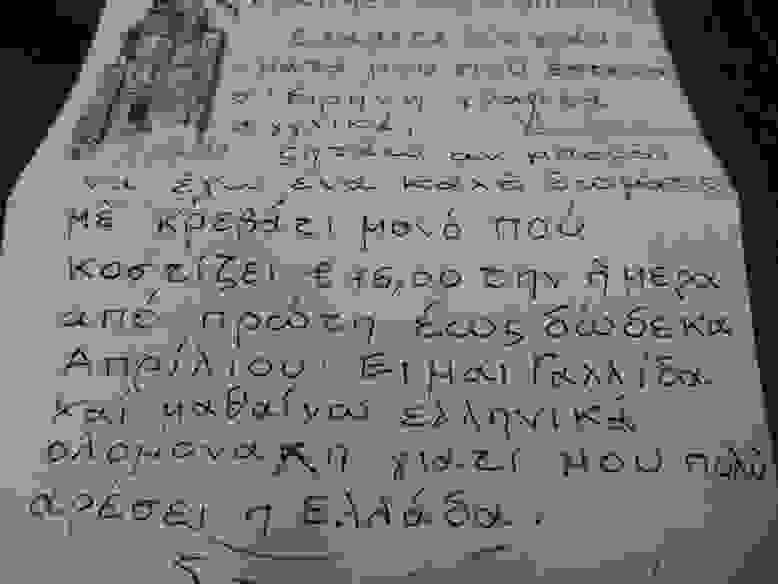 μου που έστειλα
σ' Ειρήνη
αγγλικά,
ζητάκα αν μπορώ
να έχω ένα καλό δωμάτιο
μὲ κρεβάτι μονό πού
κοστίζει € 75,00 την ἡμέρα
από πρώτη έως δώδεκα
Απρίλιου. Ειμαι Γαλλίδα
καί μαθαίνω ελληνικά
ολομοναχη γιατί μου πολύ
αρέσει η Ελλάδα.